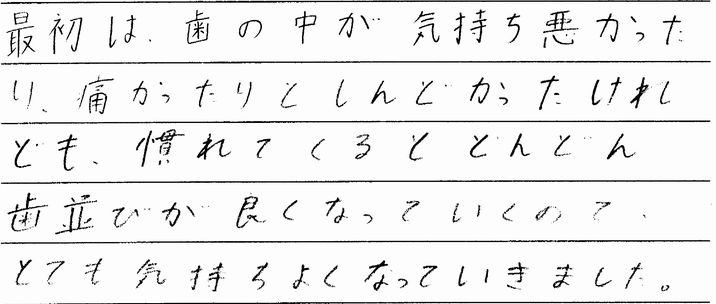 最初は、歯の中が気持ち悪かった
り、痛かったりとしんどかったけれ
ども、慣れてくるとどんどん
歯並びが良くなっていくので、
とても気持ちよくなっていきました。